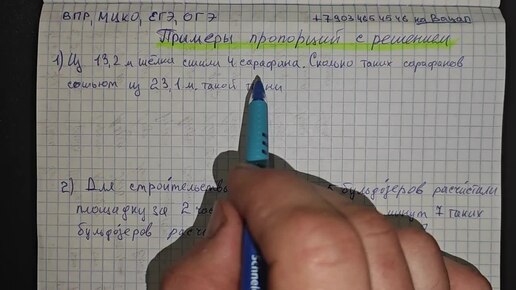 ВПР, МЦКО, ЕГЭ, ОГЭ +7 903 465 45 46 на Вацап
Примеры пропорций с решением
1) Из 13,2 м шёлка сшили 4 сарафана. Сколько таких сарафанов
сошьют из 23,1 м. такой
2) Для бульдозеров расчистали
площадку за 2 7 таких
бульдозеров
schneider